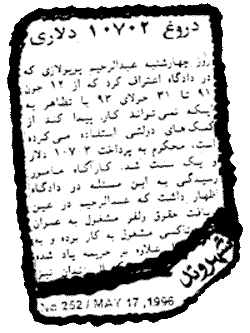 دروغ ۱۰۷۰۲ دلاری
روز چهارشنبه عبدالرحیم پریولازی که
در دادگاه اعتراف کرد که از ۱۲ جون
۹۱ تا ۳۱ جولای ۹۳ با تظاهر به
اینکه نمی‌تواند کار پیدا کند از
کمک‌های دولتی استفاده می‌کرده
است، محکوم به پرداخت ۱۰۷۰۳ دلار
و یک سنت شد. کارآگاه مامور
رسیدگی به این مسئله در دادگاه
اظهار داشت که عبدالرحیم در عین
دریافت حقوق ولفر مشغول به عنوان
تاکسی مشغول به کار بوده و به
علاوه بر جریمه یاد شده
زندان نیز
شهروند
No 252 / MAY 17, 1996